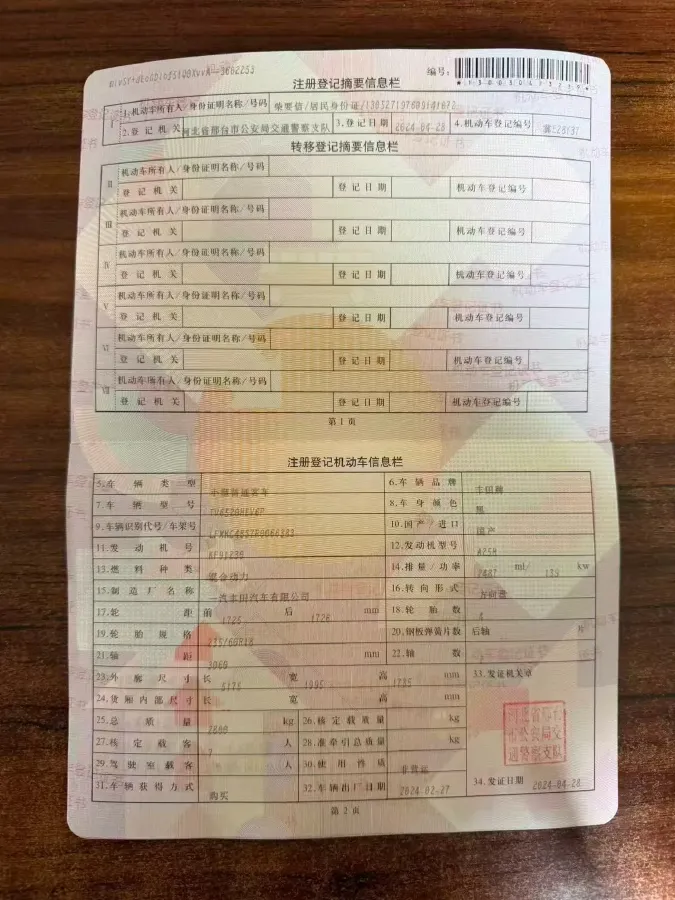 注册登记摘要信息栏
编号:
I 1.机动车所有人/身份证明名称/号码
2.登记机关 河北省邢台市公安局交通警察支队 3.登记日期 2024-04-28 4.机动车登记编号
转移登记摘要信息栏
II 机动车所有人/身份证明名称/号码
登记机关 登记日期 机动车登记编号
III 机动车所有人/身份证明名称/号码
登记机关 登记日期 机动车登记编号
IV 机动车所有人/身份证明名称/号码
登记机关 登记日期 机动车登记编号
V 机动车所有人/身份证明名称/号码
登记机关 登记日期 机动车登记编号
VI 机动车所有人/身份证明名称/号码
登记机关 登记日期 机动车登记编号
VII 机动车所有人/身份证明名称/号码
登记机关 登记日期 机动车登记编号
第1页
注册登记机动车信息栏
5.车辆类型 小型普通客车 6.车辆品牌 丰田牌
7.车辆型号 8.车身颜色 黑
9.车辆识别代号/车架号 10.国产/进口 国产
11.发动机号 12.发动机型号 A25B
13.燃料种类 混合动力 14.排量/功率 2487 ml/ 139 kw
15.制造厂名称 一汽丰田汽车有限公司 16.转向形式 方向盘
17.轮距 前 1725 后 1726 mm 18.轮胎数 4
19.轮胎规格 235/60R18 20.钢板弹簧片数 后轴 片
21.轴距 3060 mm 22.轴数
23.外廓尺寸 长 5175 宽 1995 高 1785 mm 33.发证机关章
24.货厢内部尺寸 长 宽 高 mm
25.总质量 kg 26.核定载质量 kg
27.核定载客 7 人 28.准牵引总质量 kg
29.驾驶室载客 人 30.使用性质 非营运
31.车辆获得方式 购买 32.车辆出厂日期 2024-02-27 34.发证日期 2024-04-28
河北省邢台
市公安局交
通警察支队
第2页